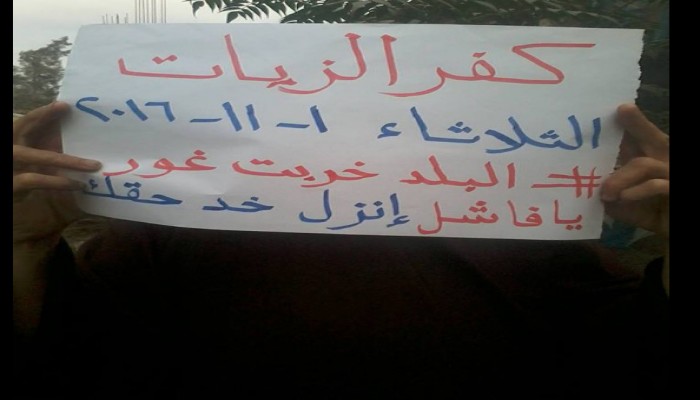 كفر الزيات
الثلاثاء ١-١١-٢٠١٦
# البلد خربت غور
يا فاشل إنزل خد حقك